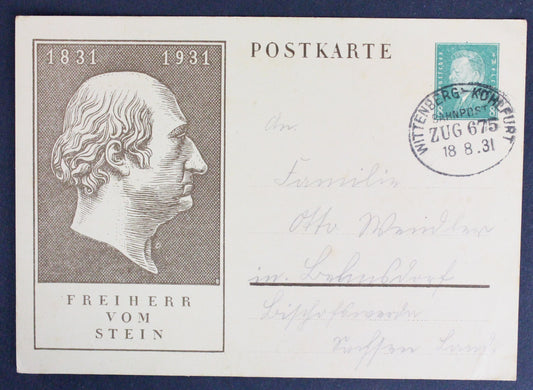 1831 1931
FREIHERR
VOM
STEIN
POSTKARTE
WITTENBERG - KOHLFURT
BAHNPOST
ZUG 675
18 8.31
An.
Familie
Otto Wendler
in Belmsdorf
Bischofswerda
Sachsen